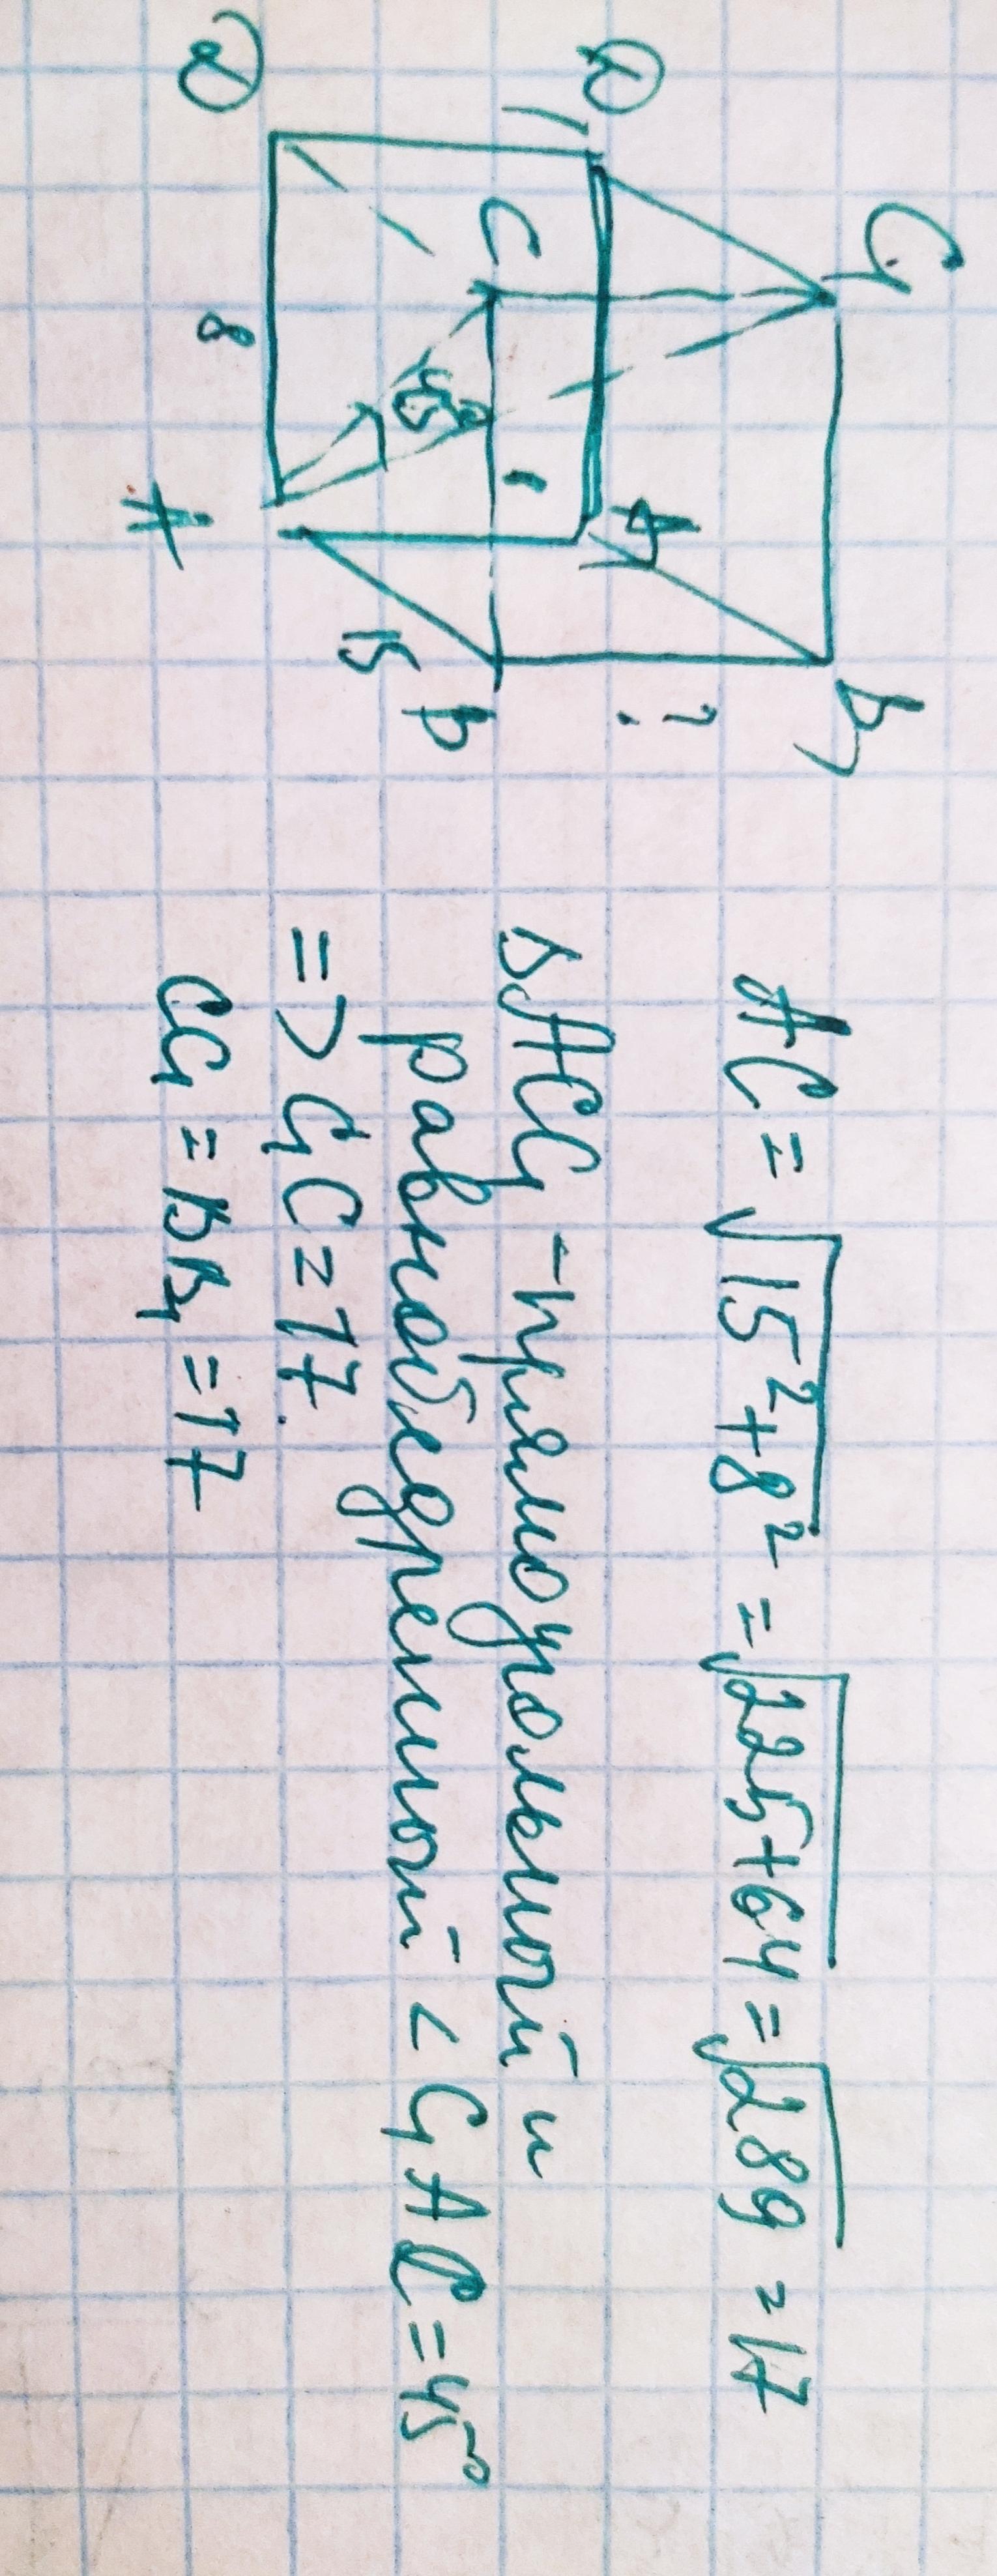 C₁
B₁
D₁
A₁
?
C
B
45°
15
D
8
A
AC = √15²+8² = √225+64 = √289 = 17
ΔACC₁ - прямоугольный и
равнобедренный < C₁AC = 45°
=> C₁C = 17.
CC₁ = BB₁ = 17